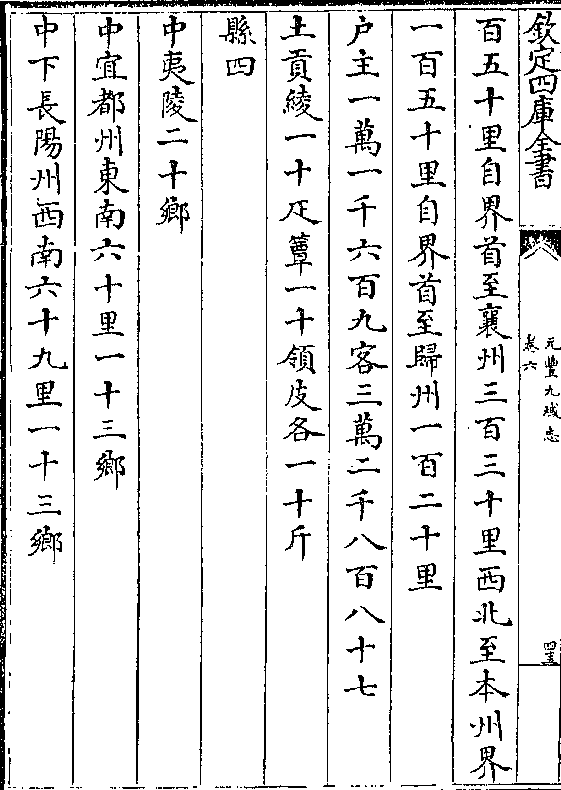 欽定四庫全書
元豐九域志
卷六
百五十里自界首至襄州三百三十里西北至本州界
一百五十里自界首至歸州一百二十里
户主一萬一千六百九客三萬二千八百八十七
土貢綾一十疋簟一十領皮各一十斤
縣四
中夷陵二十鄉
中宜都州東南六十里一十三鄉
中下長陽州西南六十九里一十三鄉